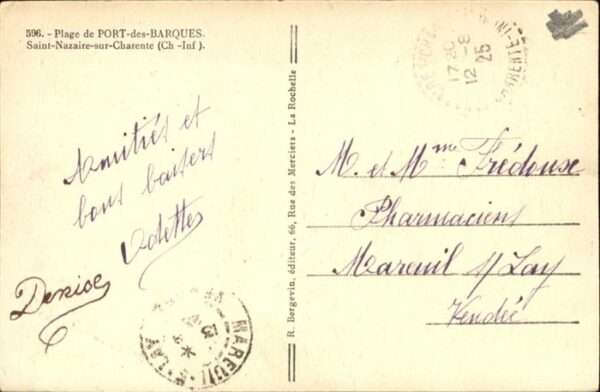 596. - Plage de PORT-des-BARQUES.
Saint-Nazaire-sur-Charente (Ch -Inf).
Amitiés et
bons baisers
Odette
Denise
R. Bergevin, éditeur, 66, Rue des Merciers - La Rochelle
M. et Mme Frédouse
Pharmaciens
Mareuil s/ Lay
Vendée
17 20
12 - 8
25
MAREUIL